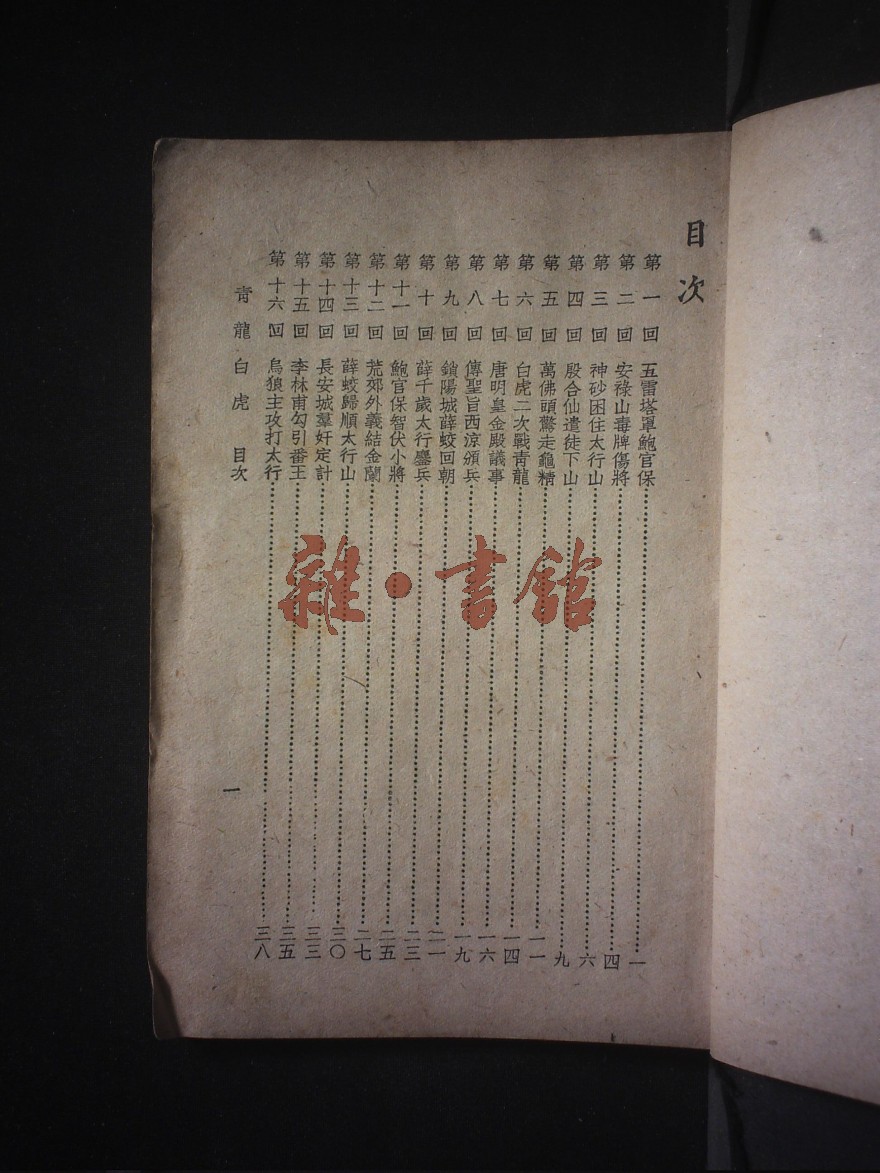 目次
第一回 五雷塔罩鮑官保……一
第二回 安祿山毒牌傷將……四
第三回 神砂困住太行山……六
第四回 殷合仙遣徒下山……九
第五回 萬佛頭驚走龜精……一一
第六回 白虎二次戰青龍……一四
第七回 唐明皇金殿議事……一六
第八回 傳聖旨西涼頒兵……一九
第九回 鎖陽城薛蛟回朝……二一
第十回 薛千歲太行鏖兵……二三
第十一回 鮑官保智伏小將……二五
第十二回 荒郊外義結金蘭……二七
第十三回 薛蛟歸順太行山……三〇
第十四回 長安城羣奸定計……三三
第十五回 李林甫勾引番王……三五
第十六回 烏狼主攻打太行……三八
青龍白虎 目次 一
雜·書館